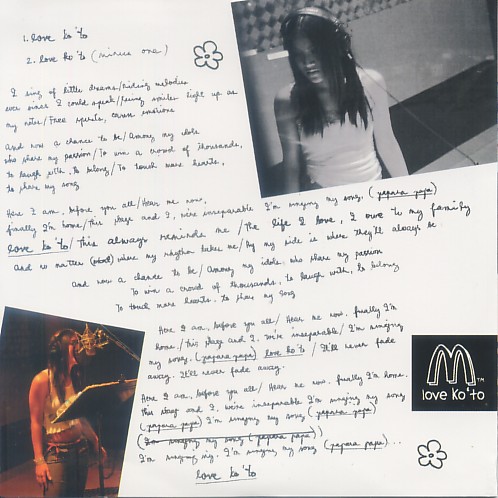 1. love ko 'to
2. love ko 'to (minus one)
I sing of little dreams/riding melodies
ever since I could speak/facing smiles light up as
my notes/Free spirits, caress emotions
And now a chance to be/Among my idols
who share my passion/To win a crowd of thousands,
to laugh with, to belong/To touch more hearts,
to share my song
Here I am, before you all/Hear me now,
finally I'm home/this stage and I, we're inseparable I'm singing my song, (papara papa)
love ko 'to/this always reminds me/the life I love, I owe to my family
And no matter where my rhythm takes me/By my side is where they'll always be
And now a chance to be/Among my idols, who share my passion
To win a crowd of thousands, to laugh with, to belong
To touch more hearts. to share my song
Here I am, before you all/Hear me now. finally I'm
home./this stage and I. We're inseparable/I'm singing
my song. (papara papa) love ko 'to/It'll never fade
away. It'll never fade away.
Here I am, before you all/Hear me now. finally I'm home.
this stage and I, we're inseparable I'm singing my song
(papara papa) I'm singing my song (papara papa)
(I'm singing my song (papara papa))
I'm singing my. I'm singing, my song (papara papa)...
love ko 'to
M TM
love ko 'to